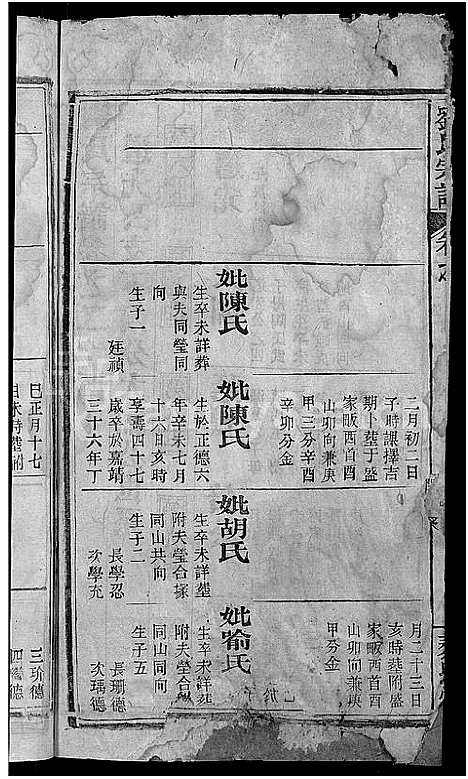 劉氏宗譜
二月初二日
子時課擇吉
期卜葬于盛
家畈酉首酉
山卯向兼庚
甲三分辛酉
辛卯分金
妣陳氏
生卒未詳葬
與夫同塋同
向
生子一
廷禎
妣陳氏
生於正德六
年辛未七月
十六日亥時
享壽四十七
歲卒於嘉靖
三十六年丁
月二十三日
亥時葬附盛
家畈酉首酉
山卯向兼庚
甲分金
妣胡氏
生卒未詳塟
附夫塋合塚
同山共向
生子二
長學忍
次學充
妣喻氏
生卒未詳葬
附夫塋合
同山同向
生子五
長珊德
次瑀德
三玠德
四德
巳正月十七
日未時塟附